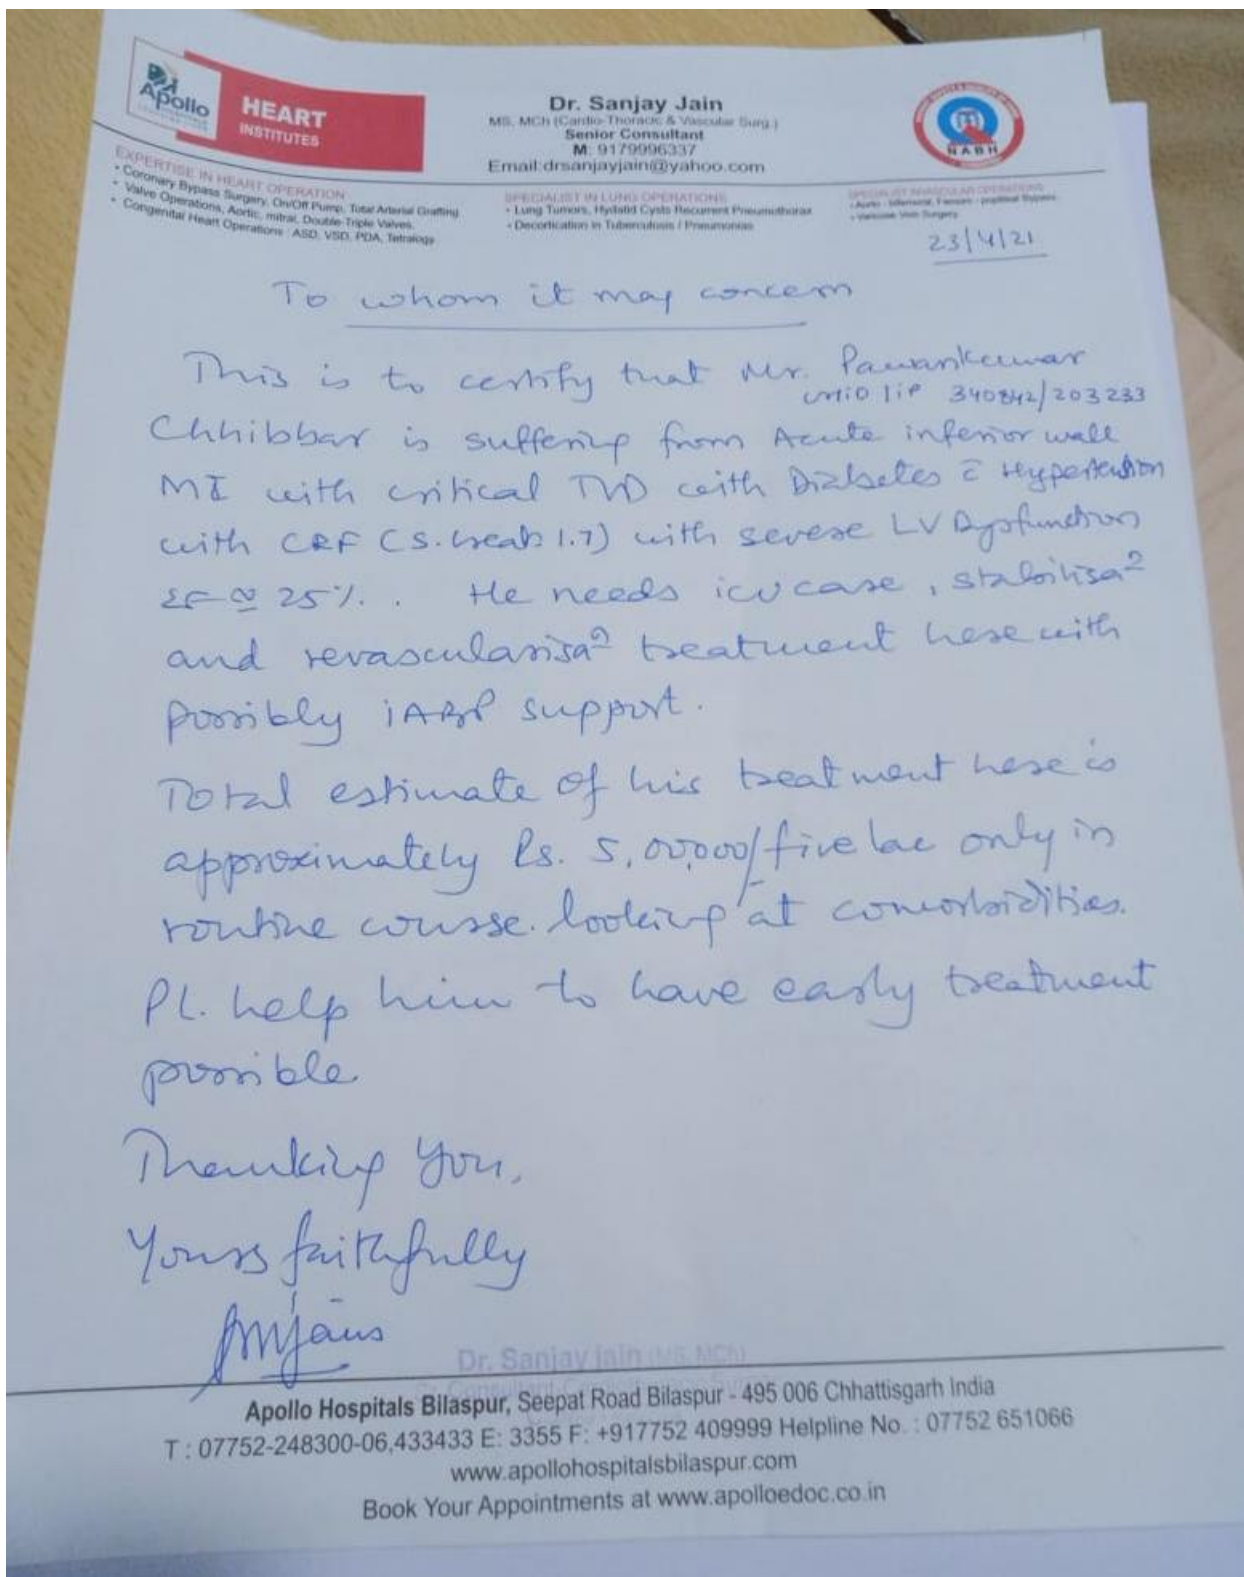 Apollo
HOSPITALS
HEART
INSTITUTES
Dr. Sanjay Jain
MS, MCh (Cardio-Thoracic & Vascular Surg.)
Senior Consultant
M: 9179996337
Email:drsanjayjain@yahoo.com
NABH
EXPERTISE IN HEART OPERATION
• Coronary Bypass Surgery, On/Off Pump, Total Arterial Grafting
• Valve Operations, Aortic, mitral, Double-Triple Valves,
• Congenital Heart Operations : ASD, VSD, PDA, Tetralogy
SPECIALIST IN LUNG OPERATIONS
• Lung Tumors, Hydatid Cysts Recurrent Pneumothorax
• Decortication in Tuberculosis / Pneumonias
• Varicose Vein Surgery
23/4/21
To whom it may concern
This is to certify that Mr. Pawankumar
UHID 340842/203233
Chhibbar is suffering from Acute inferior wall
MI with critical TVD with Diabetes c̄ Hypertension
with CRF (S. 1.7) with severe LV Dysfunction
EF ≅ 25%. He needs icu care, stabilisaⁿ
and revascularisaⁿ treatment here with
possibly iABP support.
Total estimate of his treatment here is
approximately Rs. 5,00,000/- five lac only in
routine course. looking at comorbidities.
Pl. help him to have early treatment
possible
Thanking You,
Yours faithfully
Dr. Sanjay Jain (MS, MCh)
Apollo Hospitals Bilaspur, Seepat Road Bilaspur - 495 006 Chhattisgarh India
T : 07752-248300-06,433433 E: 3355 F: +917752 409999 Helpline No. : 07752 651066
www.apollohospitalsbilaspur.com
Book Your Appointments at www.apolloedoc.co.in